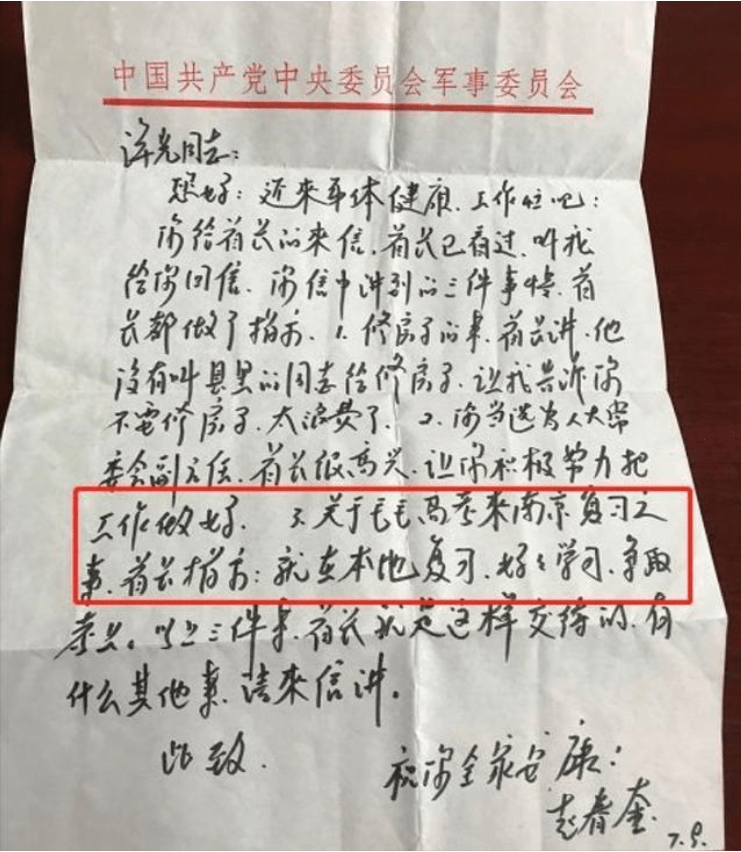 中国共产党中央委员会军事委员会
泽光同志:
您好:近来身体健康、工作忙吧:
你给首长的来信,首长已看过,叫我
给你回信。你信中讲到的三件事情,首
长都做了指示、1.修房子的事,首长讲,他
没有叫县里的同志给修房子,让我告诉你
不要修房子,太浪费了、2.你当选为人大常
委会副主任,首长很高兴,让你积极努力把
工作做好、3.关于毛毛高考来南京复习之
事,首长指示:就在本地复习,好好学习,争取
考上。以上三件事,首长就是这样交待的,有
什么其他事,请来信讲。
此致、
祝你全家安康:
赵春奎
7.9.